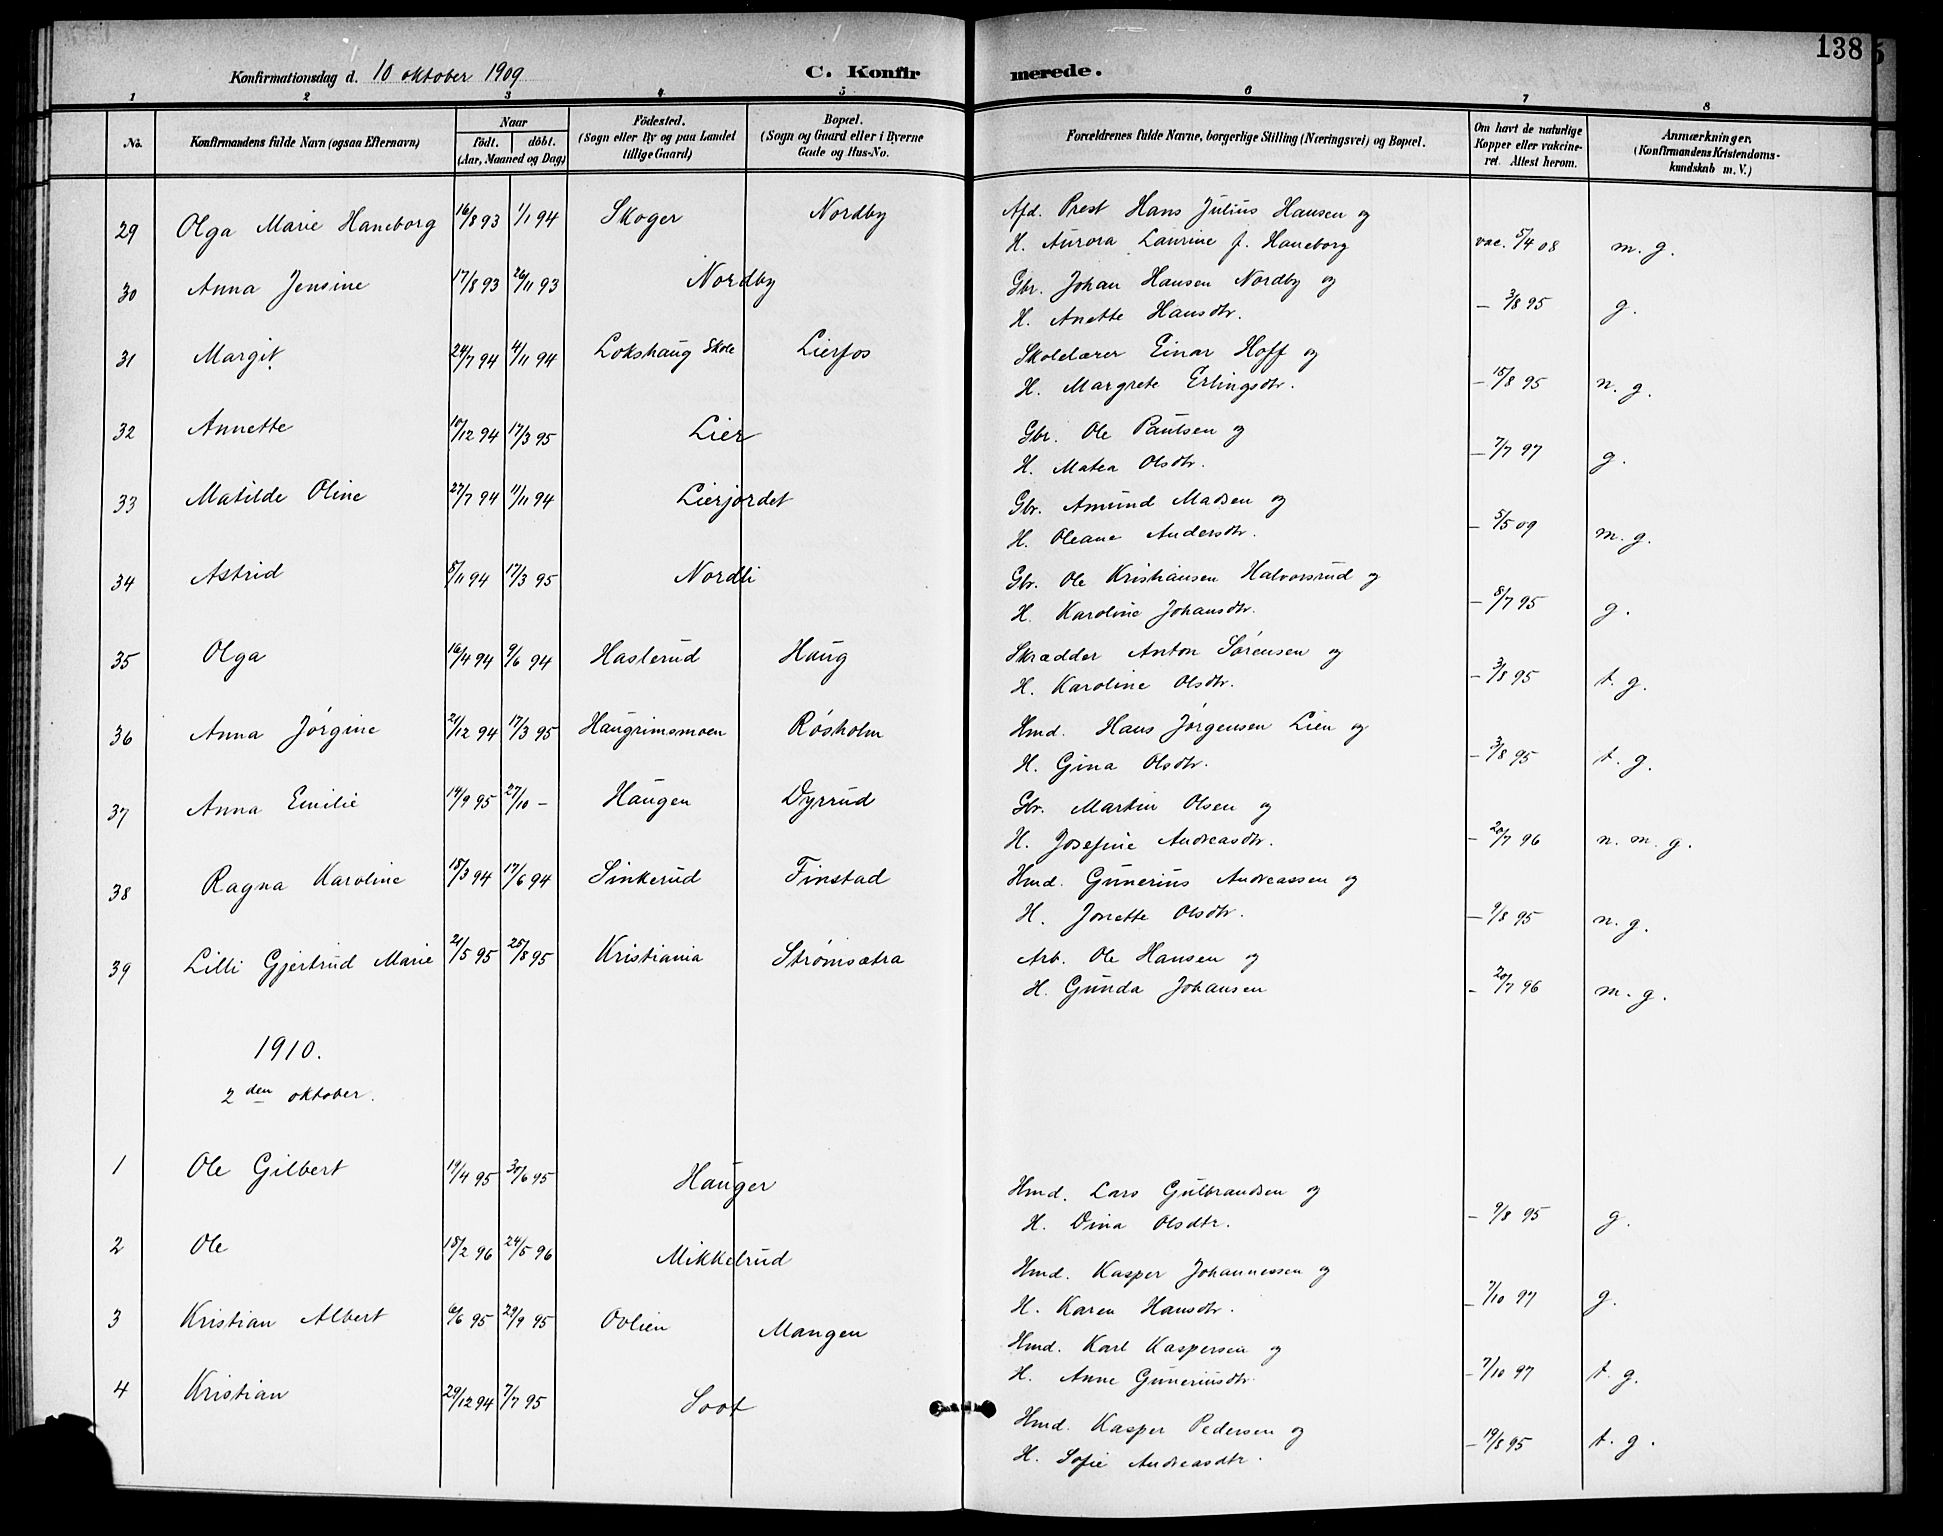 138
Konfirmationsdag d. 10 oktober 1909
C. Konfirmerede.
1 2 3 4 5 6 7 8
No.
Konfirmandens fulde Navn (ogsaa Efternavn)
Naar
födt. döbt.
(Aar, Maaned og Dag)
Födested.
(Sogn eller By og paa Landet
tillige Gaard)
Bopæl.
(Sogn og Gaard eller i Byerne
Gade og Hus-No.
Forældrenes fulde Navne, borgerlige Stilling (Næringsvei) og Bopæl.
Om havt de naturlige
Kopper eller vakcine-
ret. Attest herom.
Anmærkninger.
(Konfirmandens Kristendoms-
kundskab m. V.)
29 Olga Marie Haneborg 16/8 93 1/1 94 Skoger Nordby Afd. Prest Hans Julius Hansen og
H. Aurora Laurine f. Haneborg vac. 5/4 08 m. g.
30 Anna Jensine 17/8 93 26/11 93 Nordby Gbr. Johan Hansen Nordby og
H. Anette Hansdtr. – 3/8 95 g.
31 Margit 24/7 94 4/11 94 Lokshaug Skole Lierfos Skolelærer Einar Hoff og
H. Margrete Erlingsdtr. – 15/8 95 n. g.
32 Annette 10/12 94 17/3 95 Lier Gbr. Ole Paulsen og
H. Matea Olsdtr. – 7/7 97 g.
33 Matilde Oline 27/7 94 11/11 94 Lierjordet Gbr. Amund Madsen og
H. Oleane Andersdtr. – 5/5 09 m. g.
34 Astrid 8/11 94 17/3 95 Nordli Gbr. Ole Kristiansen Halvorsrud og
H. Karoline Johansdtr. – 8/7 95 g.
35 Olga 16/4 94 9/6 94 Haslerud Haug Skrædder Anton Sørensen og
H. Karoline Olsdtr. – 3/8 95 t. g.
36 Anna Jørgine 21/12 94 17/3 95 Haugrimsmoen Røsholm Hmd. Hans Jørgensen Lien og
H. Gina Olsdtr. – 3/8 95 t. g.
37 Anna Emilie 14/9 95 27/10 – Haugen Dyrrud Gbr. Martin Olsen og
H. Josefine Andreasdtr. – 20/7 96 n. m. g.
38 Ragna Karoline 18/3 94 17/6 94 Sinkerud Finstad Hmd. Gunerius Andreassen og
H. Jonette Olsdtr. – 9/8 95 n. g.
39 Lilli Gjertrud Marie 21/5 95 25/8 95 Kristiania Strømsætra Arb. Ole Hansen og
H. Gunda Johansen – 20/7 96 m. g.
1910.
2den oktober.
1 Ole Gilbert 19/4 95 30/6 95 Hauger Hmd. Lars Gulbrandsen og
H. Dina Olsdtr. – 9/8 95 g.
2 Ole 18/2 96 24/5 96 Mikkelrud Hmd. Kasper Johannessen og
H. Karen Hansdtr. – 7/10 97 g.
3 Kristian Albert 6/6 95 29/9 95 Ovlien Mangen Hmd. Karl Kaspersen og
H. Anne Guneriusdtr. – 7/10 97 t. g.
4 Kristian 29/12 94 7/7 95 Soot Hmd. Kasper Pedersen og
H. Sofie Andreasdtr. – 19/8 95 t. g.